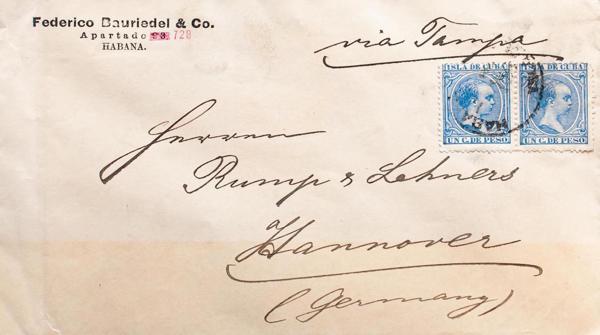 Federico Bauriedel & Co.
Apartado 93. 728
HABANA.
via Tampa
ISLA DE CUBA ISLA DE CUBA
UN C. DE PESO UN C. DE PESO
HABA
Herren
Rump & Lehners
Hannover
(Germany)